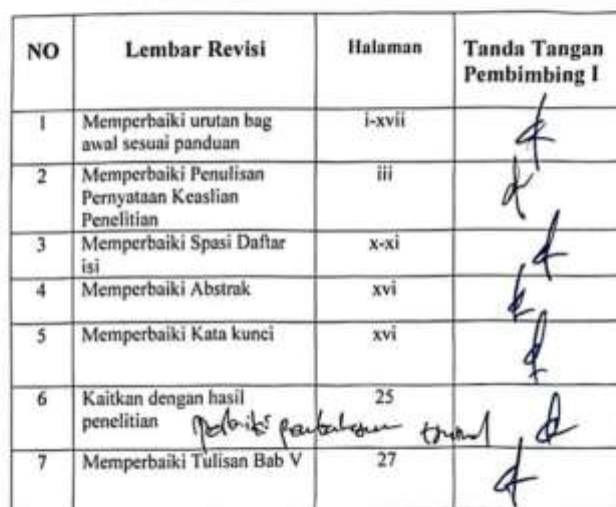 NO Lembar Revisi Halaman Tanda Tangan
Pembimbing I
1 Memperbaiki urutan bag i-xvii
awal sesuai panduan
2 Memperbaiki Penulisan iii
Pernyataan Keaslian
Penelitian
3 Memperbaiki Spasi Daftar x-xi
isi
4 Memperbaiki Abstrak xvi
5 Memperbaiki Kata kunci xvi
6 Kaitkan dengan hasil 25
penelitian
7 Memperbaiki Tulisan Bab V 27